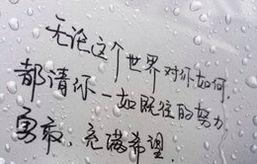 无论这个世界对你如何,
都请你一如既往的努力,
勇敢,充满希望